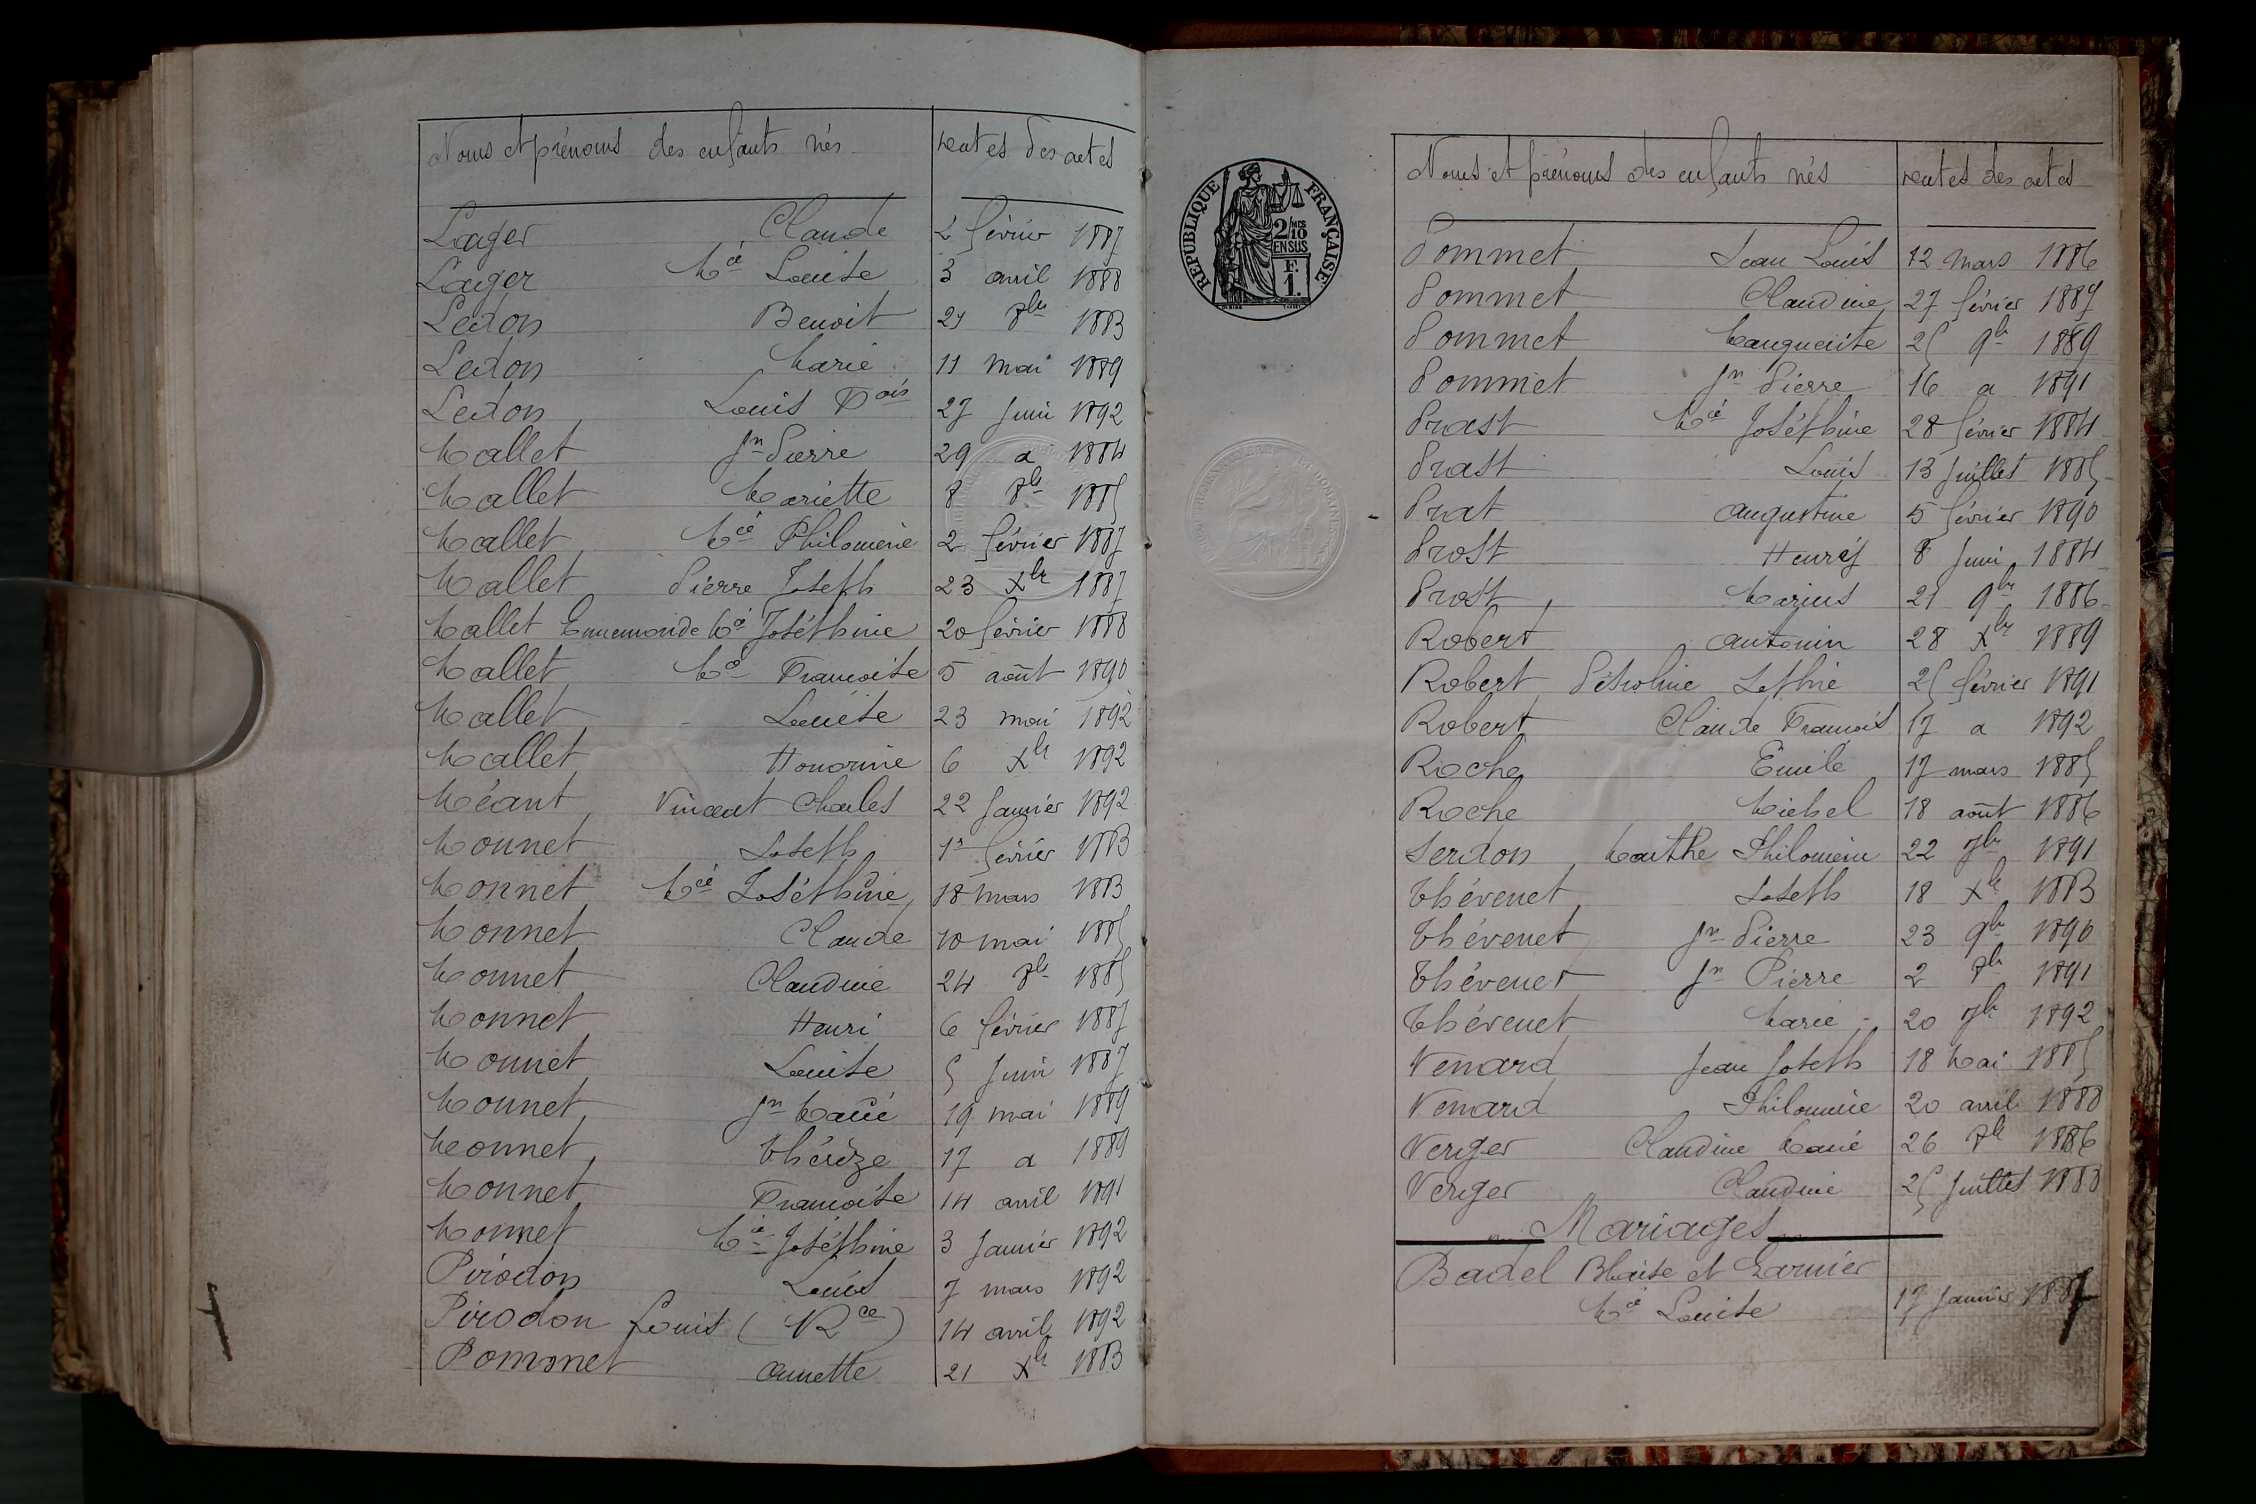 Noms et prénoms des enfants nés Dates des actes
Lager Claude 2 février 1887
Lager Mie Louise 3 avril 1888
Ledon Benoit 21 8bre 1883
Ledon Marie 11 mai 1889
Ledon Louis Fois 27 Juin 1892
Mallet Jn Pierre 29 a 1884
Mallet Mariette 8 8bre 1885
Mallet Mie Philomène 2 février 1887
Mallet Pierre Joseph 23 Xbr 1887
Mallet Ennemonde Mie Joséphine 20 février 1888
Mallet Mie Françoise 5 août 1890
Mallet Louise 23 mai 1892
Mallet Honorine 6 Xbr 1892
Méant Vincent Charles 22 Janvier 1892
Monnet Joseph 1er février 1883
Monnet Mie Joséphine 18 mars 1883
Monnet Claude 10 mai 1885
Monnet Claudine 24 8bre 1885
Monnet Henri 6 février 1887
Monnet Louise 5 Juin 1887
Monnet Jn Marie 19 mai 1889
Monnet Thérèze 17 a 1889
Monnet Françoise 14 avril 1891
Monnet Mie Joséphine 3 Janvier 1892
Pirodon Louis 7 mars 1892
Pirodon Louis (Rce) 14 avril 1892
Pommet Annette 21 Xbr 1883
RÉPUBLIQUE FRANÇAISE
2/10
EN SUS
F.
1.
Noms et prénoms des enfants nés Dates des actes
Pommet Jean Louis 12 mars 1886
Pommet Claudine 27 février 1887
Pommet Marguerite 25 9br 1889
Pommet Jn Pierre 16 a 1891
Prast Mie Joséphine 28 février 1884
Prast Louis 13 Juillet 1885
Prat Augustine 5 février 1890
Prost Henry 8 Juin 1884
Prost Marius 21 9br 1886
Robert Antonin 28 Xbr 1889
Robert Pétroline Sophie 25 février 1891
Robert Claude François 17 a 1892
Roche Emile 17 mars 1885
Roche Michel 18 août 1886
Serdon Marthe Philomène 22 7br 1891
Thévenet Joseph 18 Xbr 1883
Thévenet Jn Pierre 23 9br 1890
Thévenet Jn Pierre 2 8br 1891
Thévenet Marie 20 7br 1892
Venard Jean Joseph 18 Mai 1885
Venard Philomène 20 avril 1888
Verger Claudine Marie 26 8br 1886
Verger Claudine 25 Juillet 1888
Mariages
Badel Blaise et Garnier
Mie Louise 17 Janvier 1887